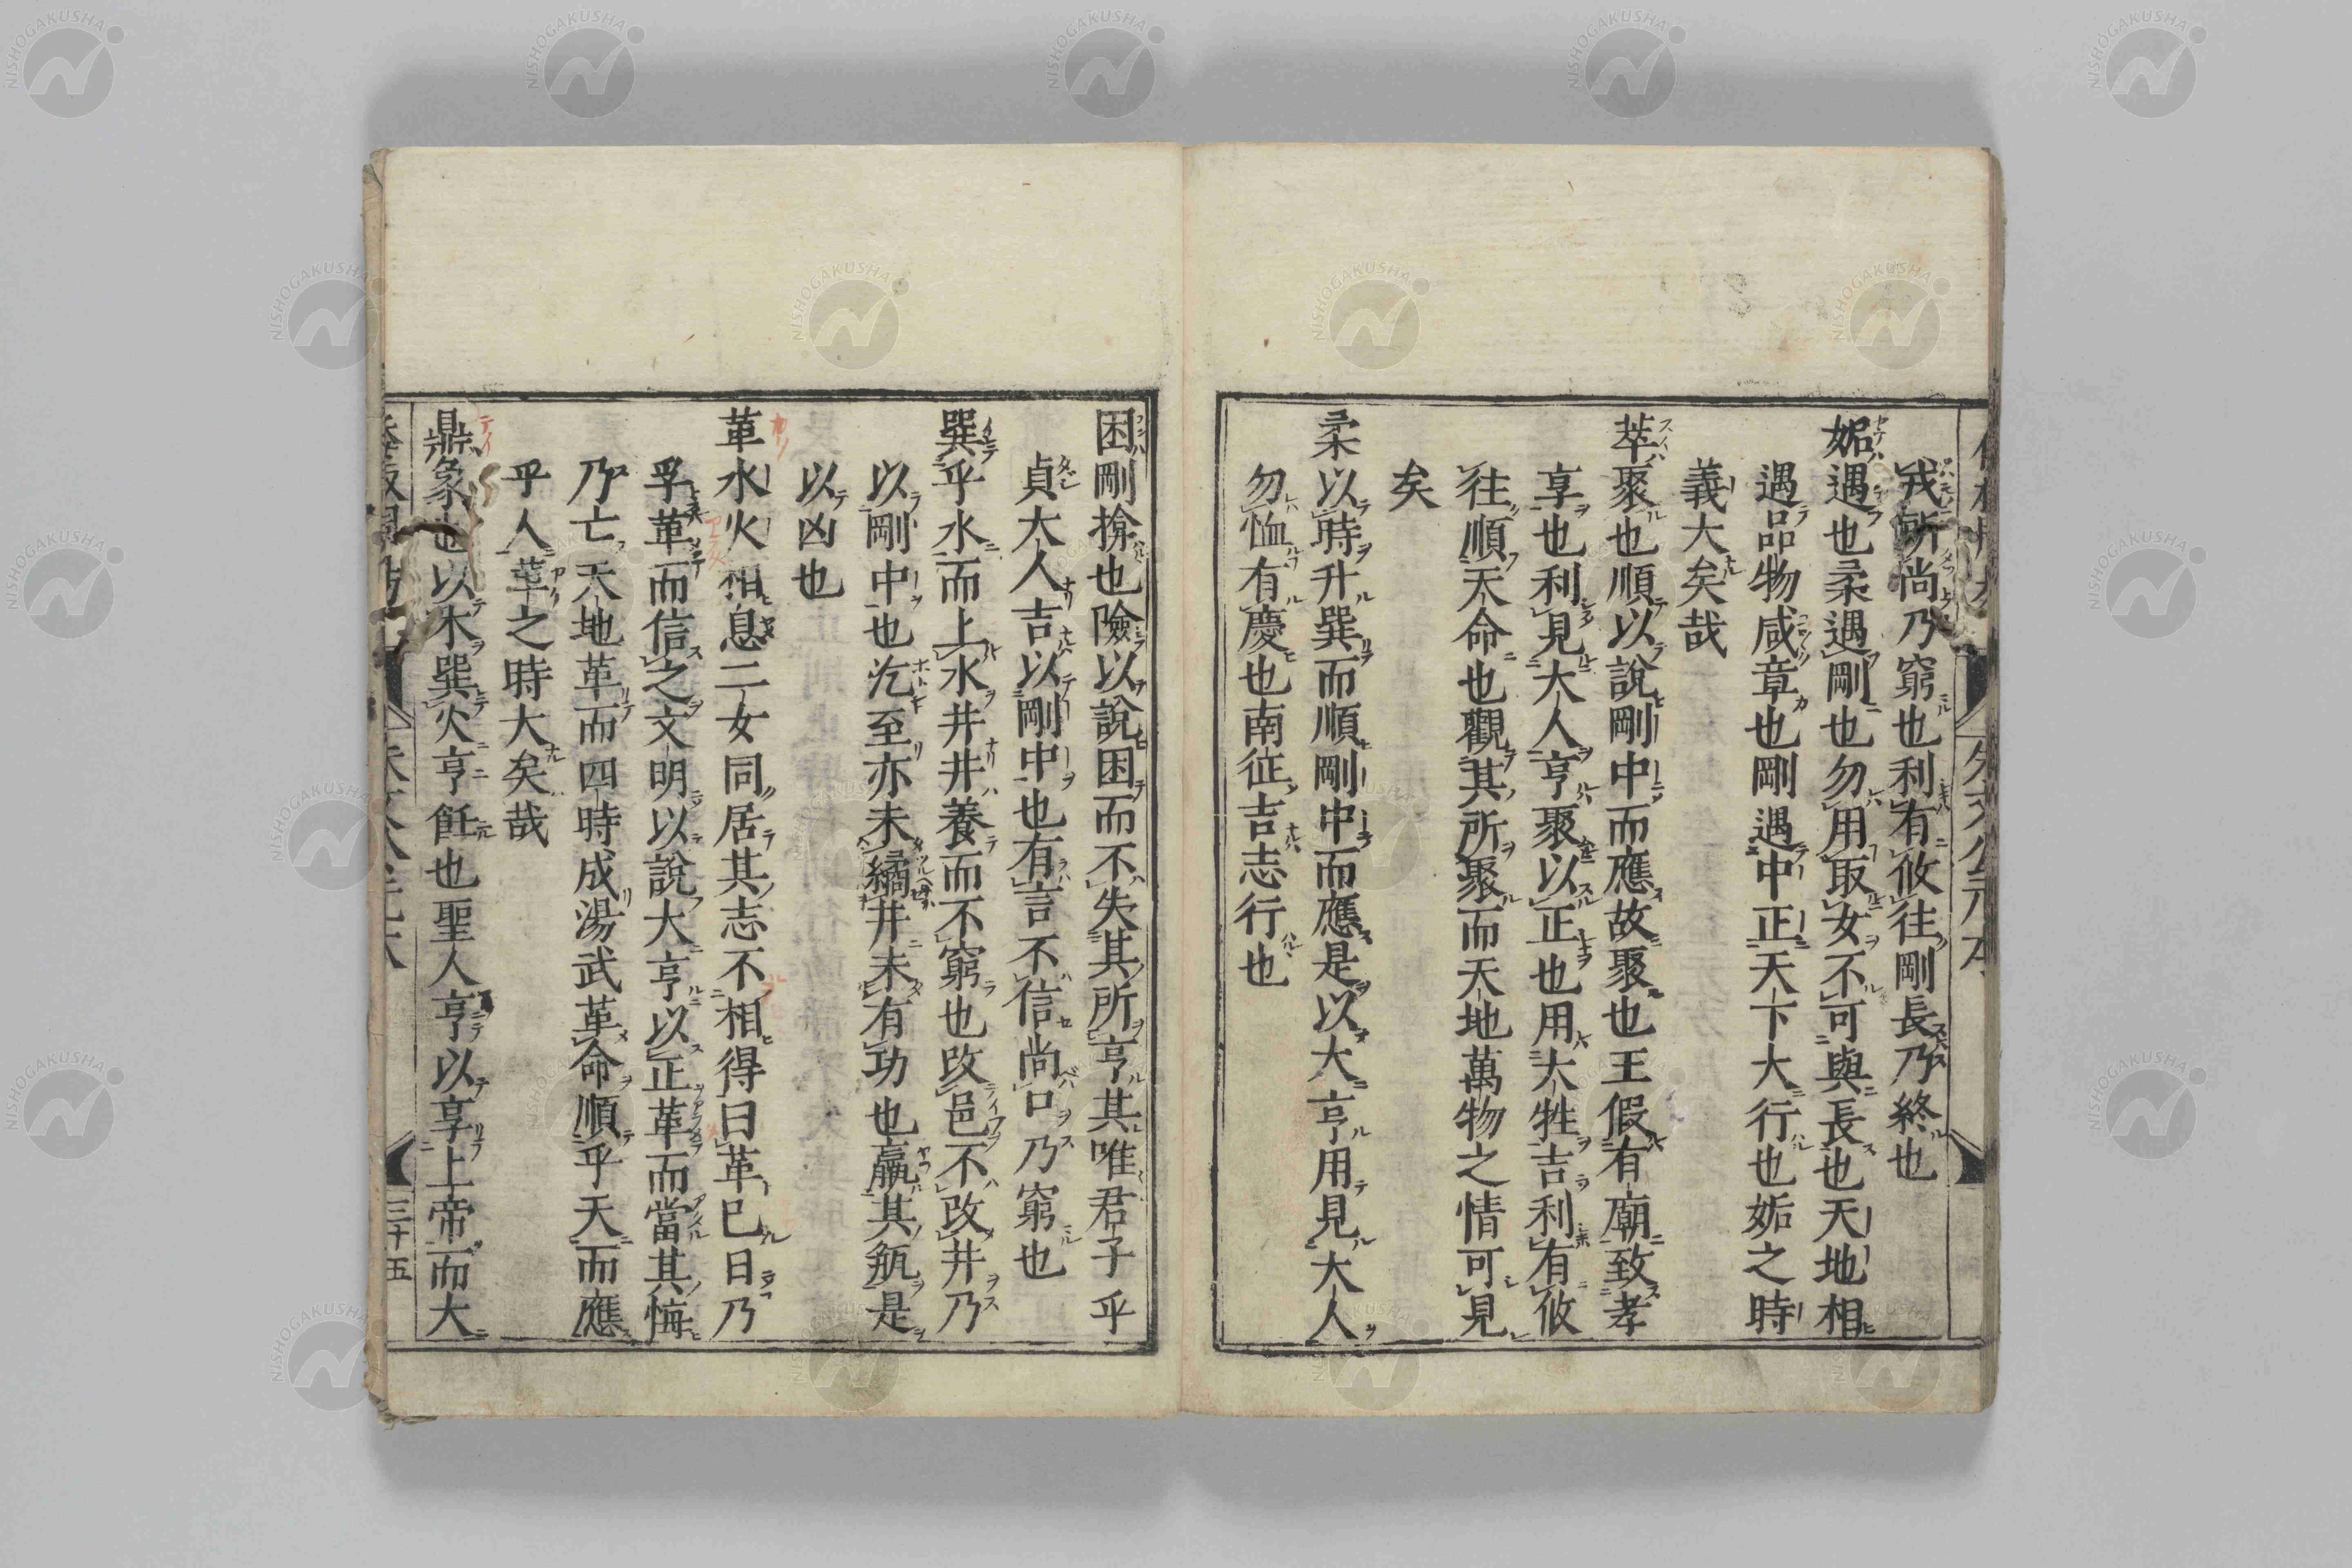 戎所尚乃窮也利有攸往剛長乃終也
姤遇也柔遇剛也勿用取女不可與長也天地相
遇品物咸章也剛遇中正天下大行也姤之時
義大矣哉
萃聚也順以說剛中而應故聚也王假有廟致孝
享也利見大人亨聚以正也用大牲吉利有攸
往順天命也觀其所聚而天地萬物之情可見
矣
柔以時升巽而順剛中而應是以大亨用見大人
勿恤有慶也南征吉志行也
困剛揜也險以說困而不失其所亨其唯君子乎
貞大人吉以剛中也有言不信尚口乃窮也
巽乎水而上水井井養而不窮也改邑不改井乃
以剛中也汔至亦未繘井未有功也羸其瓶是
以凶也
革水火相息二女同居其志不相得曰革已日乃
孚革而信之文明以說大亨以正革而當其悔
乃亡天地革而四時成湯武革命順乎天而應
乎人革之時大矣哉
鼎象也以木巽火亨飪也聖人亨以享上帝而大
三十五
NISHOGAKUSHA